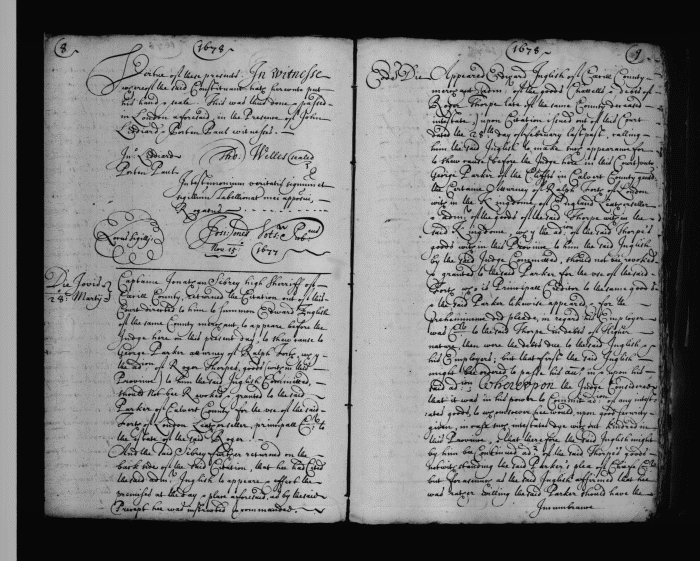 8
1678
Vertue of these presents. In witnesse
whereof the said Constituant hath hereunto put
his hand & seale. This was thus done & passed
in London aforesaid, in the presence of John
Leddiard & Porten Paul witnesses.
Jno: Leddiard
Porten Paul
Tho: Welles
In testimonium veritatis signum et
sigillum Tabellionat mei apposui,
Rogatus
Locus Sigilli
Jon: Jones Notr Pub
Nov: 15: 1677
Die Jovis
28: Martij
Captaine Jonathan Sibrey high Sheriff of
Cecill County, returned the Citation out of this
Court directed to him to Summon Edward English
of the same County mercht, to appeare before the
Judge here in this present day, to shew cause to
George Parker attorney of Ralph Forts, why
the admon of Roger Thorpes goods, within this
Province, to him the said English Committed,
should not be Revoked & granted to the said
Parker of Calvert County for the use of the said
Forts of London Leatherseller, principall to
the Estate of the said Roger.
And the said Sibrey further returned on the
back side of the said Citation, that he has Cited
the said admr English to appeare & effect the
premises at the day & place aforesaid, as by the said
Precept hee was instructed & commanded.
1678
9
Eod: Die Appeared Edward English of Cecill County
mercht and admr of the goods Chattells & debts of
Roger Thorpe late of the same County deceased
intestate, upon Citation issued out of this Court
dated the 28th day of February last past, calling
him the said English to make his appearance for
to shew cause before the Judge here in this Court unto
George Parker of the Clifts in Calvert County gent
the Certaine Attorney of Ralph Forts of London
within the Kingdome of England Leatherseller
& admr of the goods of the said Thorpe within the
said Kingdome, why the admon of the said Thorpe's
goods within this Province, to him the said English
by the said Judge Committed, should not be revoked
& granted to the said Parker for the use of the said
Forts, who is Principall Creditor to the same goods
& the said Parker likewise appeared, & for the
did pleade, in regard his Employer
was to the said Thorpe in debts of higher
nature, then were the debts due to the said English &
his Employers; but that first the said English
might be ordered to passe his acct upon his
said admon Whereupon the Judge Considered
that it was in his power to Committ admon of any intest
ates goods, to whomsoever hee would, upon good security
given, in case such intestate dye without kindred in
this Province, & that therefore the said English might
by him be Continued admr of the said Thorpe's goods
notwithstanding the said Parker's plea of Cheife
but forasmuch as the said English affirmed that hee
was rather willing the said Parker should have the
Incumbrance